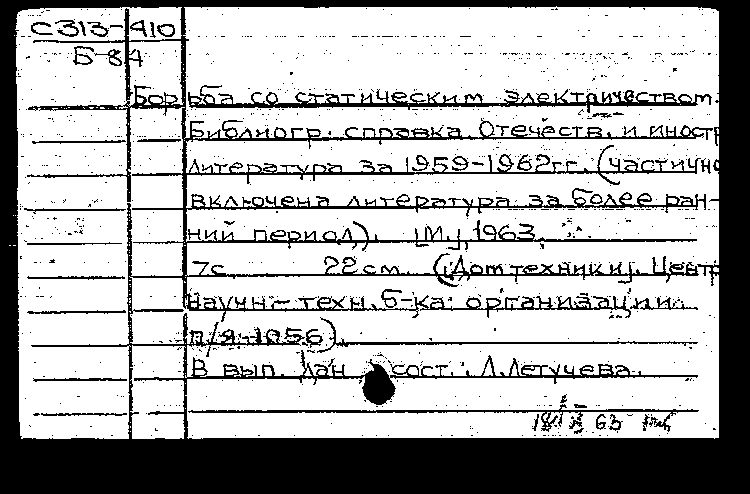 С313-410
Б-84
Борьба со статическим электричеством.
Библиогр. справка. Отечеств. и иностр
литература за 1959-1962гг. (частично
включена литература за более ран-
ний период). [М.], 1963.
7с 22см. ([Дом техники]. Центр
научн-техн. б-ка: организации
п/я-1056).
В вып. дан сост.: Л.Летучева.
63